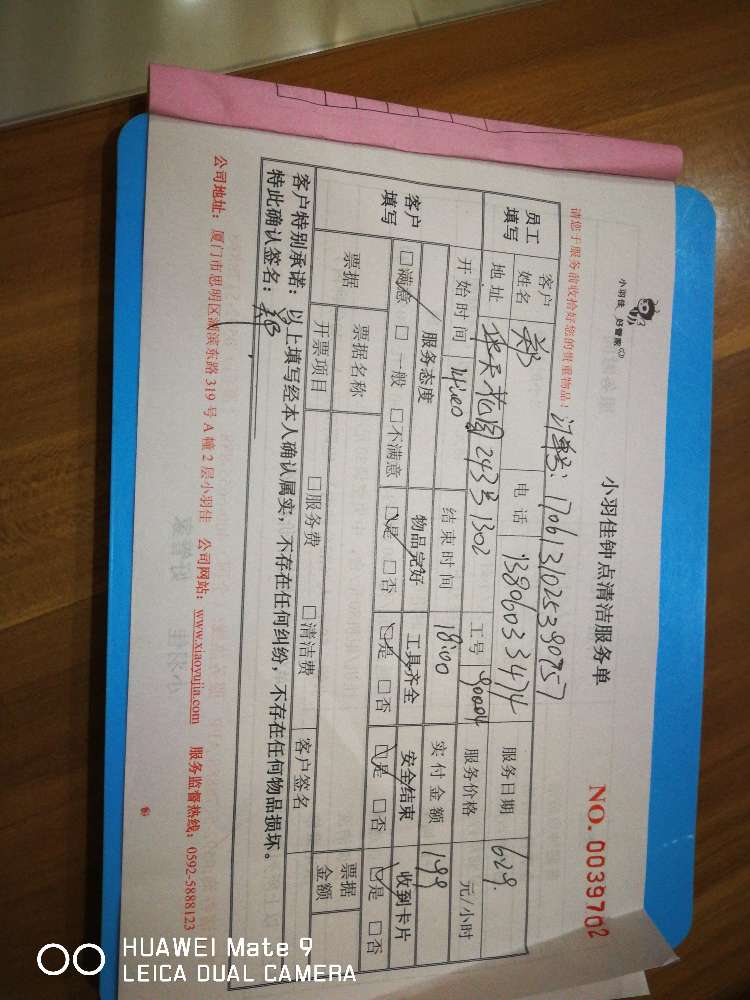 小羽佳 好管家
小羽佳钟点清洁服务单
NO. 0039702
请您于服务前收拾好您的贵重物品! 订单号: 17061310253 90757
员工填写 客户姓名 郑 电话 13806033474 服务日期 6.29.
地址 华天花园 243号 1302 工号 90004 服务价格 元/小时
开始时间 14:00 结束时间 18:00 实付金额 199
客户填写 服务态度 物品完好 工具齐全 安全结束 收到卡片
□满意 □一般 □不满意 □是 □否 □是 □否 □是 □否 □是 □否
票据 票据名称 客户签名 票据金额
开票项目 □服务费 □清洁费
客户特别承诺：以上填写经本人确认属实，不存在任何纠纷，不存在任何物品损坏。
特此确认签名：郑
公司地址：厦门市思明区湖滨东路 319 号 A 幢 2 层小羽佳 公司网站：www.xiaoyujia.com 服务监督热线：0592-5888123
HUAWEI Mate 9
LEICA DUAL CAMERA